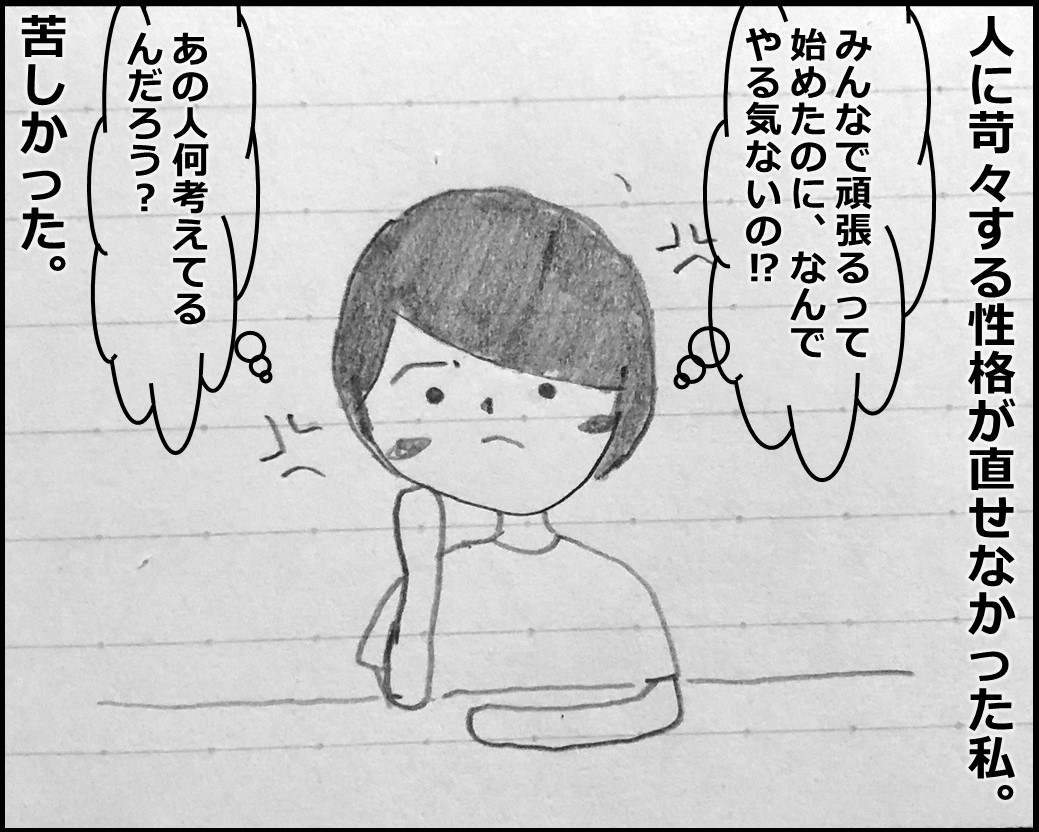 人に苛々する性格が直せなかった私。
みんなで頑張るって
始めたのに、なんで
やる気ないの!?
あの人何考えてる
んだろう?
苦しかった。